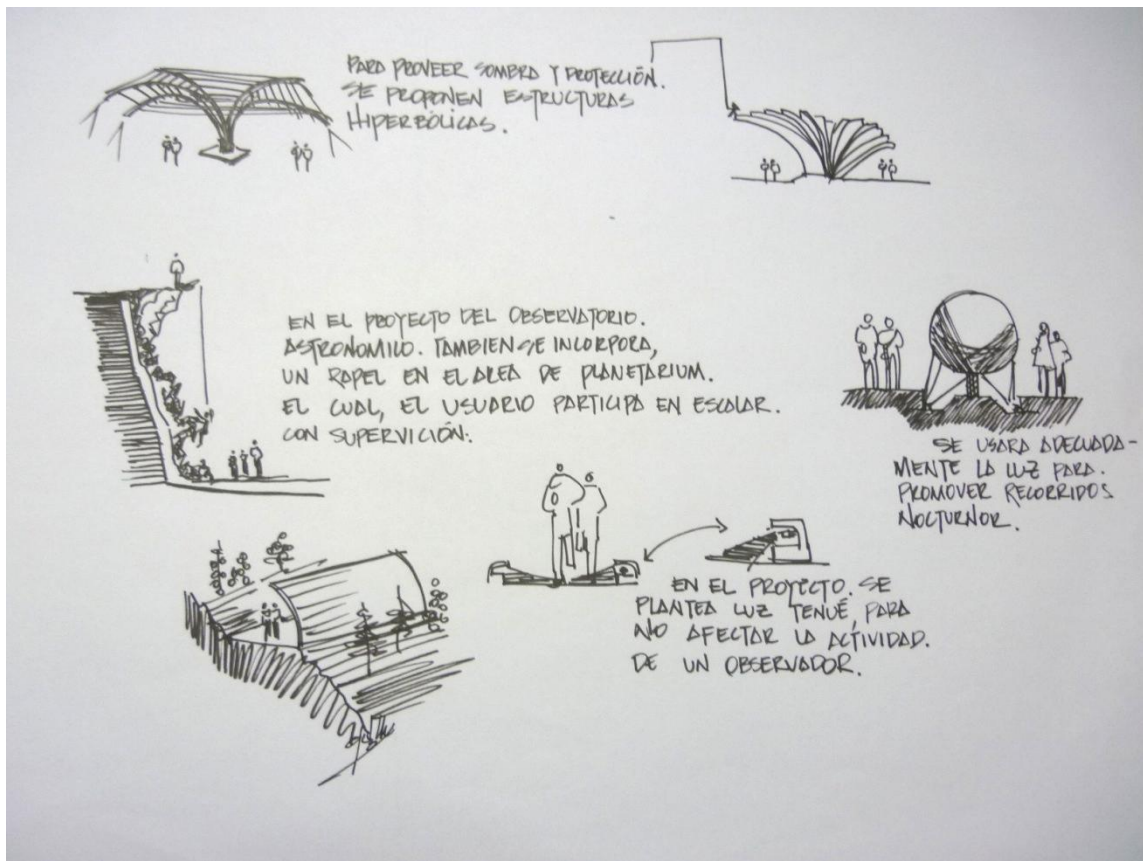 PARA PROVEER SOMBRA Y PROTECCIÓN.
SE PROPONEN ESTRUCTURAS
HIPERBÓLICAS.
EN EL PROYECTO DEL OBSERVATORIO.
ASTRONOMICO. TAMBIEN SE INCORPORA,
UN RAPEL EN EL AREA DE PLANETARIUM.
EL CUAL, EL USUARIO PARTICIPA EN ESCALAR.
CON SUPERVICIÓN.
SE USARA ADECUADA-
MENTE LA LUZ PARA.
PROMOVER RECORRIDOS
NOCTURNOR.
EN EL PROYECTO. SE
PLANTEA LUZ TENUÉ, PARA
NO AFECTAR LA ACTIVIDAD.
DE UN OBSERVADOR.